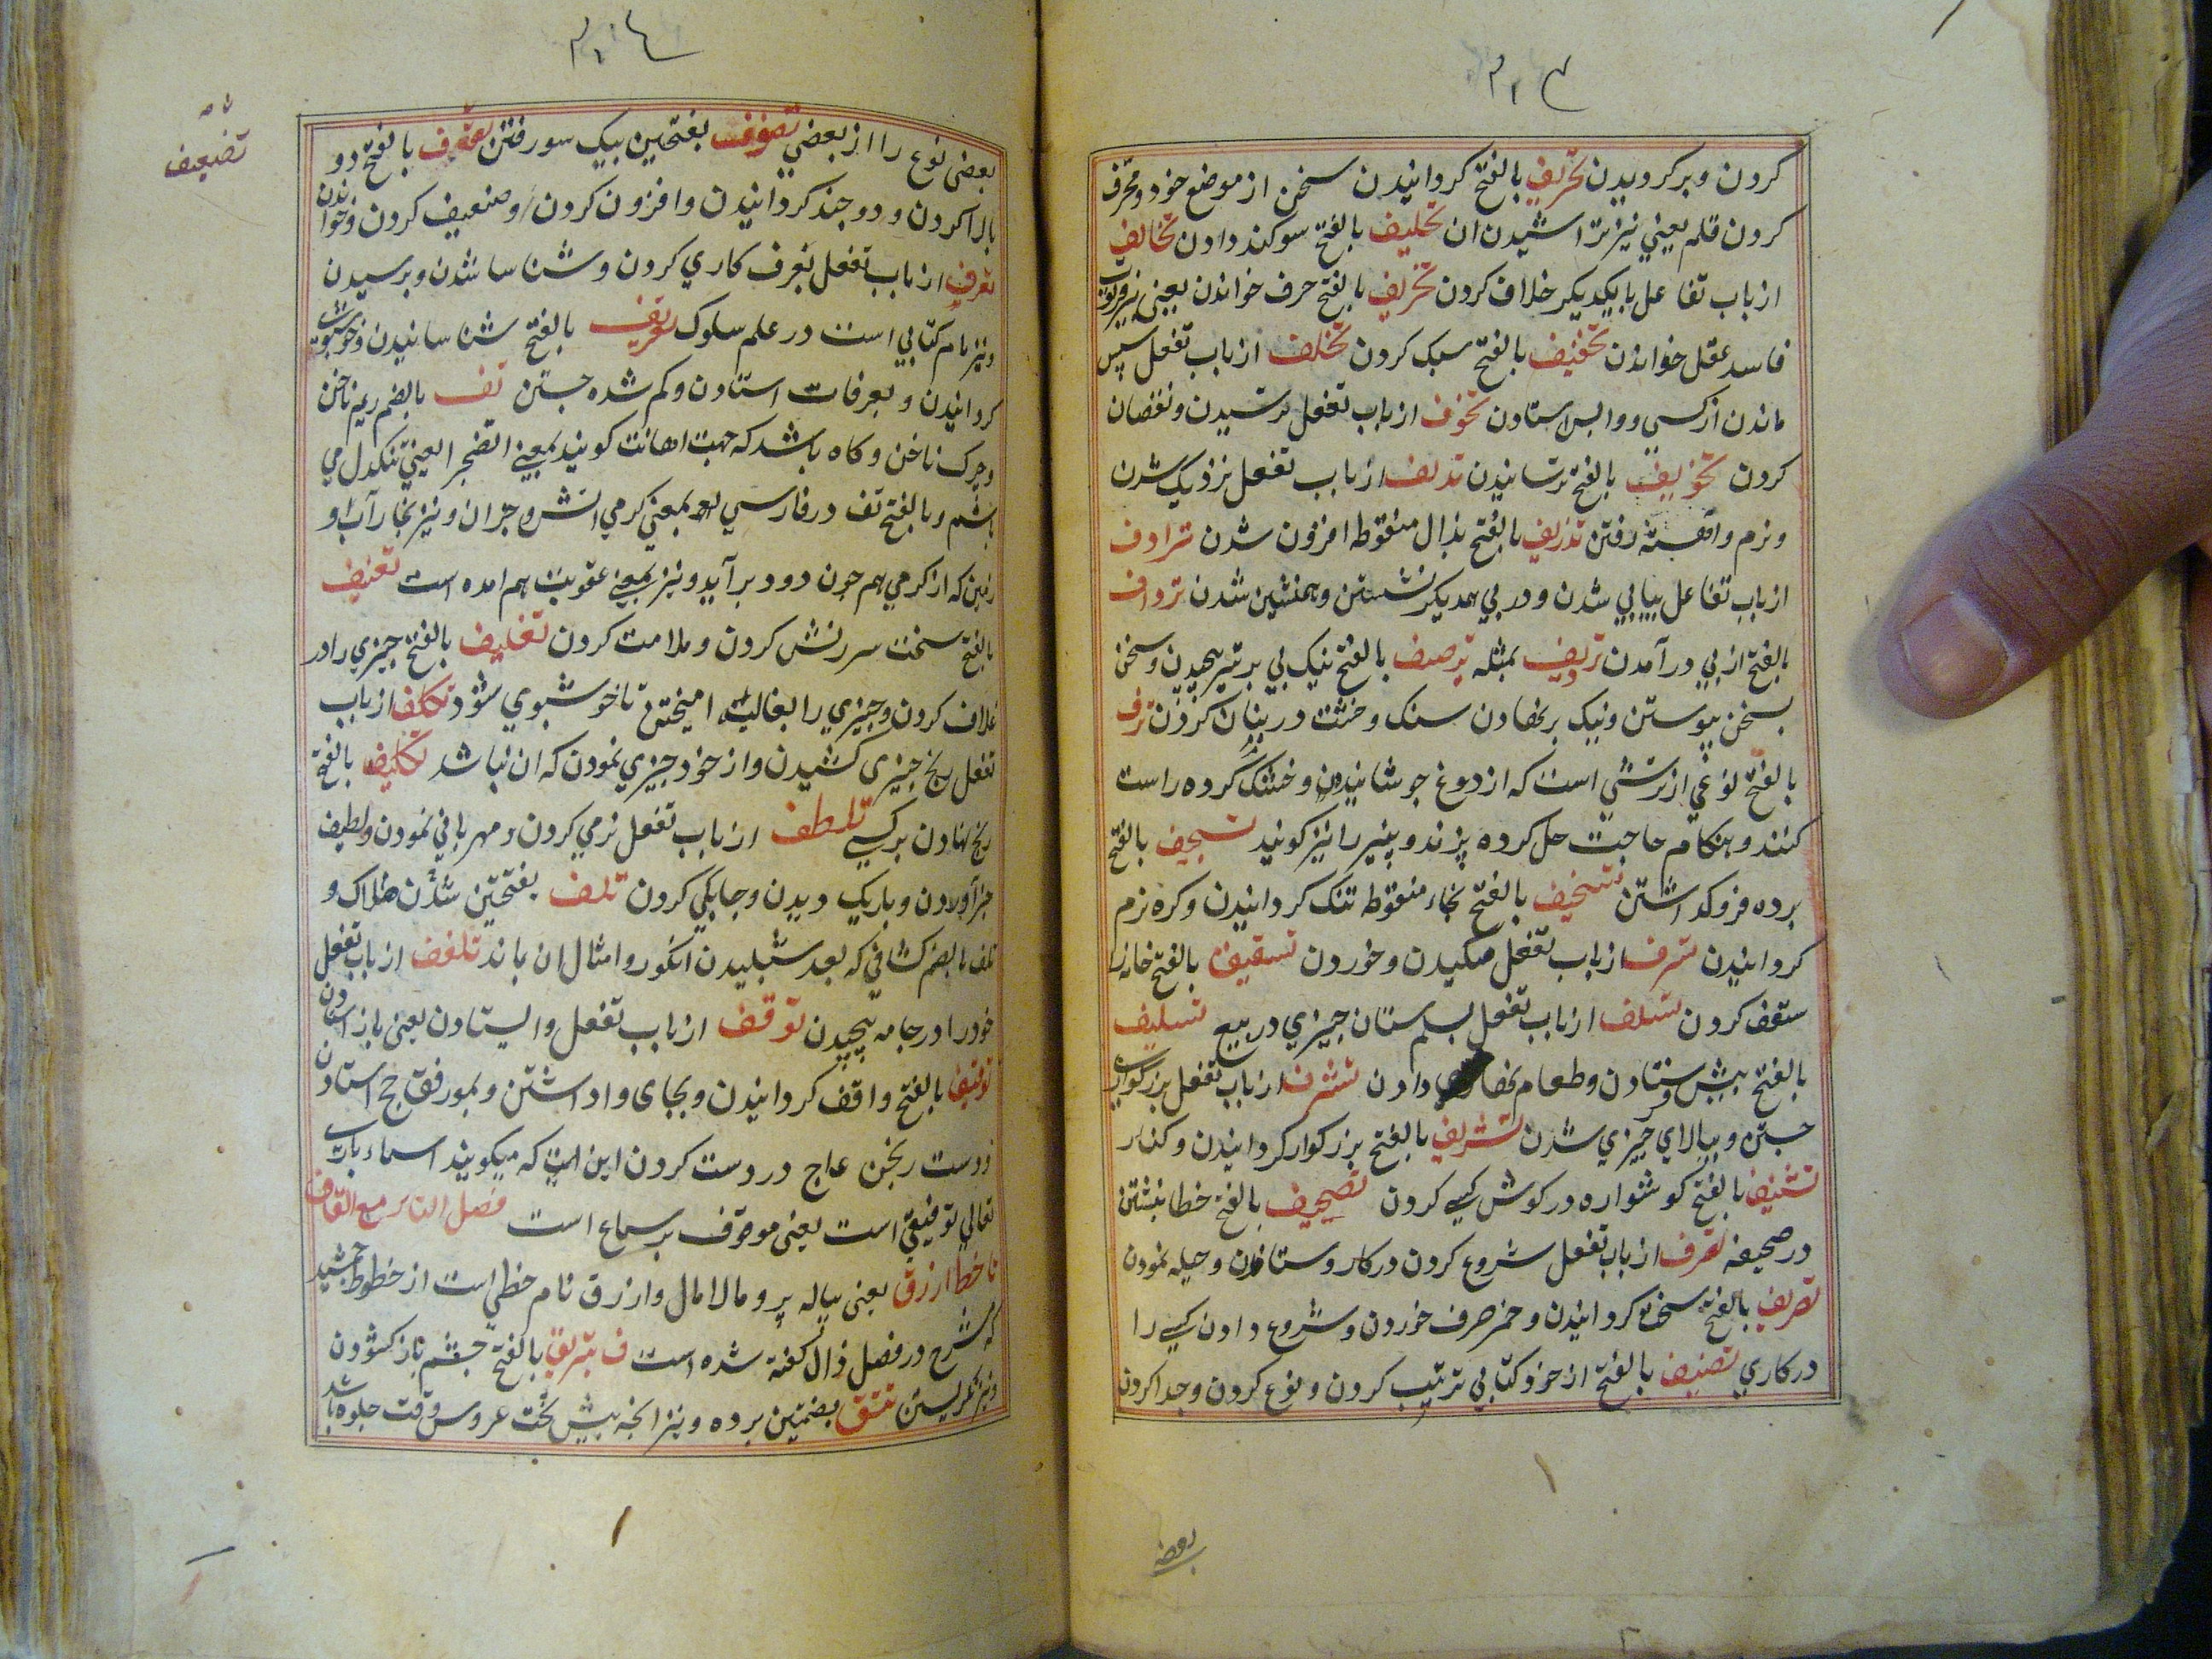 ۳۱۳
کردن و برکردیدن تحریف بالفتح کردانیدن سخن از موضع خود و محرف
کردن قلم یعنی نیز تراشیدن ان تحلیف بالفتح سوکند دادن تخالف
از باب تفاعل بایکدیکر خلاف کردن تخریف بالفتح حرف خواندن یعنی
فاسد عقل خواندن تخفیف بالفتح سبک کردن تخلف از باب تفعل سپس
ماندن از کسی و واپس استادن تخوف از باب تفعل ترسیدن و نقصان
کردن تخویف بالفتح ترسانیدن تدلف از باب تفعل نزدیک شدن
و نرم و اهسته رفتن تذریف بالفتح بذال منقوطه افزون شدن ترادف
از باب تفاعل پیاپی شدن و در پی همدیکر نشستن و همنشین شدن ترداف
بالفتح از پی در آمدن تردیف بمثله ترصیف بالفتح نیک پی بر تیر پیچیدن و سخن
بسخن پیوستن و نیک بر نهادن سنک و خشت در بنیان کردن ترف
بالفتح نوعی از ترشی است که از دوغ جوشانیدن و خشک کرده راست
کنند و هنکام حاجت حل کرده پزند و پنیر را نیز کویند تسجیف بالفتح
پرده فروکذاشتن تسخیف بالفتح بخاء منقوطه تنک کردانیدن و کره نرم
کردانیدن تسرف از باب تفعل مکیدن و خوردن تسقیف بالفتح خانه را
سقف کردن تسلف از باب تفعل بسلم ستان چیزی در بیع تسلیف
بالفتح پیش فرستادن و طعام نهاری دادن تشرف از باب تفعل بزرکواری
جستن و ببالای چیزی شدن تشریف بالفتح بزرکوار کردانیدن و کنار
تشنیف بالفتح کوشواره در کوش کسی کردن تصحیف بالفتح خطا نبشتن
در صحیفه تصرف از باب تفعل شروع کردن در کار و ستادن و حیله نمودن
تصریف بالفتح سخن کردانیدن و خمر صرف خوردن و شروع دادن کسی را
در کاری تصنیف بالفتح از خود کتابی ترتیب کردن و نوع کردن و جدا کردن
بعضی
۳۱٤
تضعیف
بعضی نوع را از بعضی بفتحتین بیک سو رفتن بالفتح دو
بالا کردن و دو چند کردانیدن و افزون کردن و ضعیف کردن و خواندن
تعرف از باب تفعل تعرف کاری کردن و شناسا شدن و پرسیدن
و نیز نام کتابی است در علم سلوک تعریف بالفتح شناسانیدن و خوشبوی
کردانیدن و بعرفات استادن و کم شده جستن تف بالضم ریم ناخن
و چرک ناخن و کاه باشد که جهت اهانت کویند بمعنی اتضجر یعنی تنکدل می
باشم و بالفتح تف در فارسی بمعنی کرمی اتش و جزان و نیز بخار آب و
زمین که از کرمی هم چون دود بر آید و نیز بمعنی عقوبت هم امده است تعنیف
بالفتح سخت سرزنش کردن و ملامت کردن تغلیف بالفتح چیزی را در
غلاف کردن و چیزی را بغالیه امیختن تا خوشبوی شود تکلف از باب
تفعل رنج چیزی کشیدن و از خود چیزی نمودن که ان نباشد تکلیف بالفتح
رنج نهادن بر کسی تلطف از باب تفعل نرمی کردن و مهربانی نمودن و لطیف
چیز آوردن و باریک دیدن و چابکی کردن تلف بفتحتین شدن هلاک و
تلف بالضم کشافی که بعد سپلیدن انکور و امثال ان باند تلفف از باب تفعل
خود را در جامه پیچیدن توقف از باب تفعل وایستادن یعنی باز استادن
توقیف بالفتح واقف کردانیدن و بجای واداشتن و بموقف حج استادن
و دست رنجن عاج در دست کردن این است که میکویند اسماء باری
تعالی توقیفی است یعنی موقوف بر سماع است فصل التاء مع القاف
تا خط ازرق یعنی پیاله پر و مالامال و ازرق نام خطی است از خطوط جمشید
که شرح در فصل ذال کفته شده است ف تبریق بالفتح چشم باز کشودن
و تیز نکریستن تتق بضمتین پرده و نیز انچه پیش تخت عروس وقت جلوه باشد